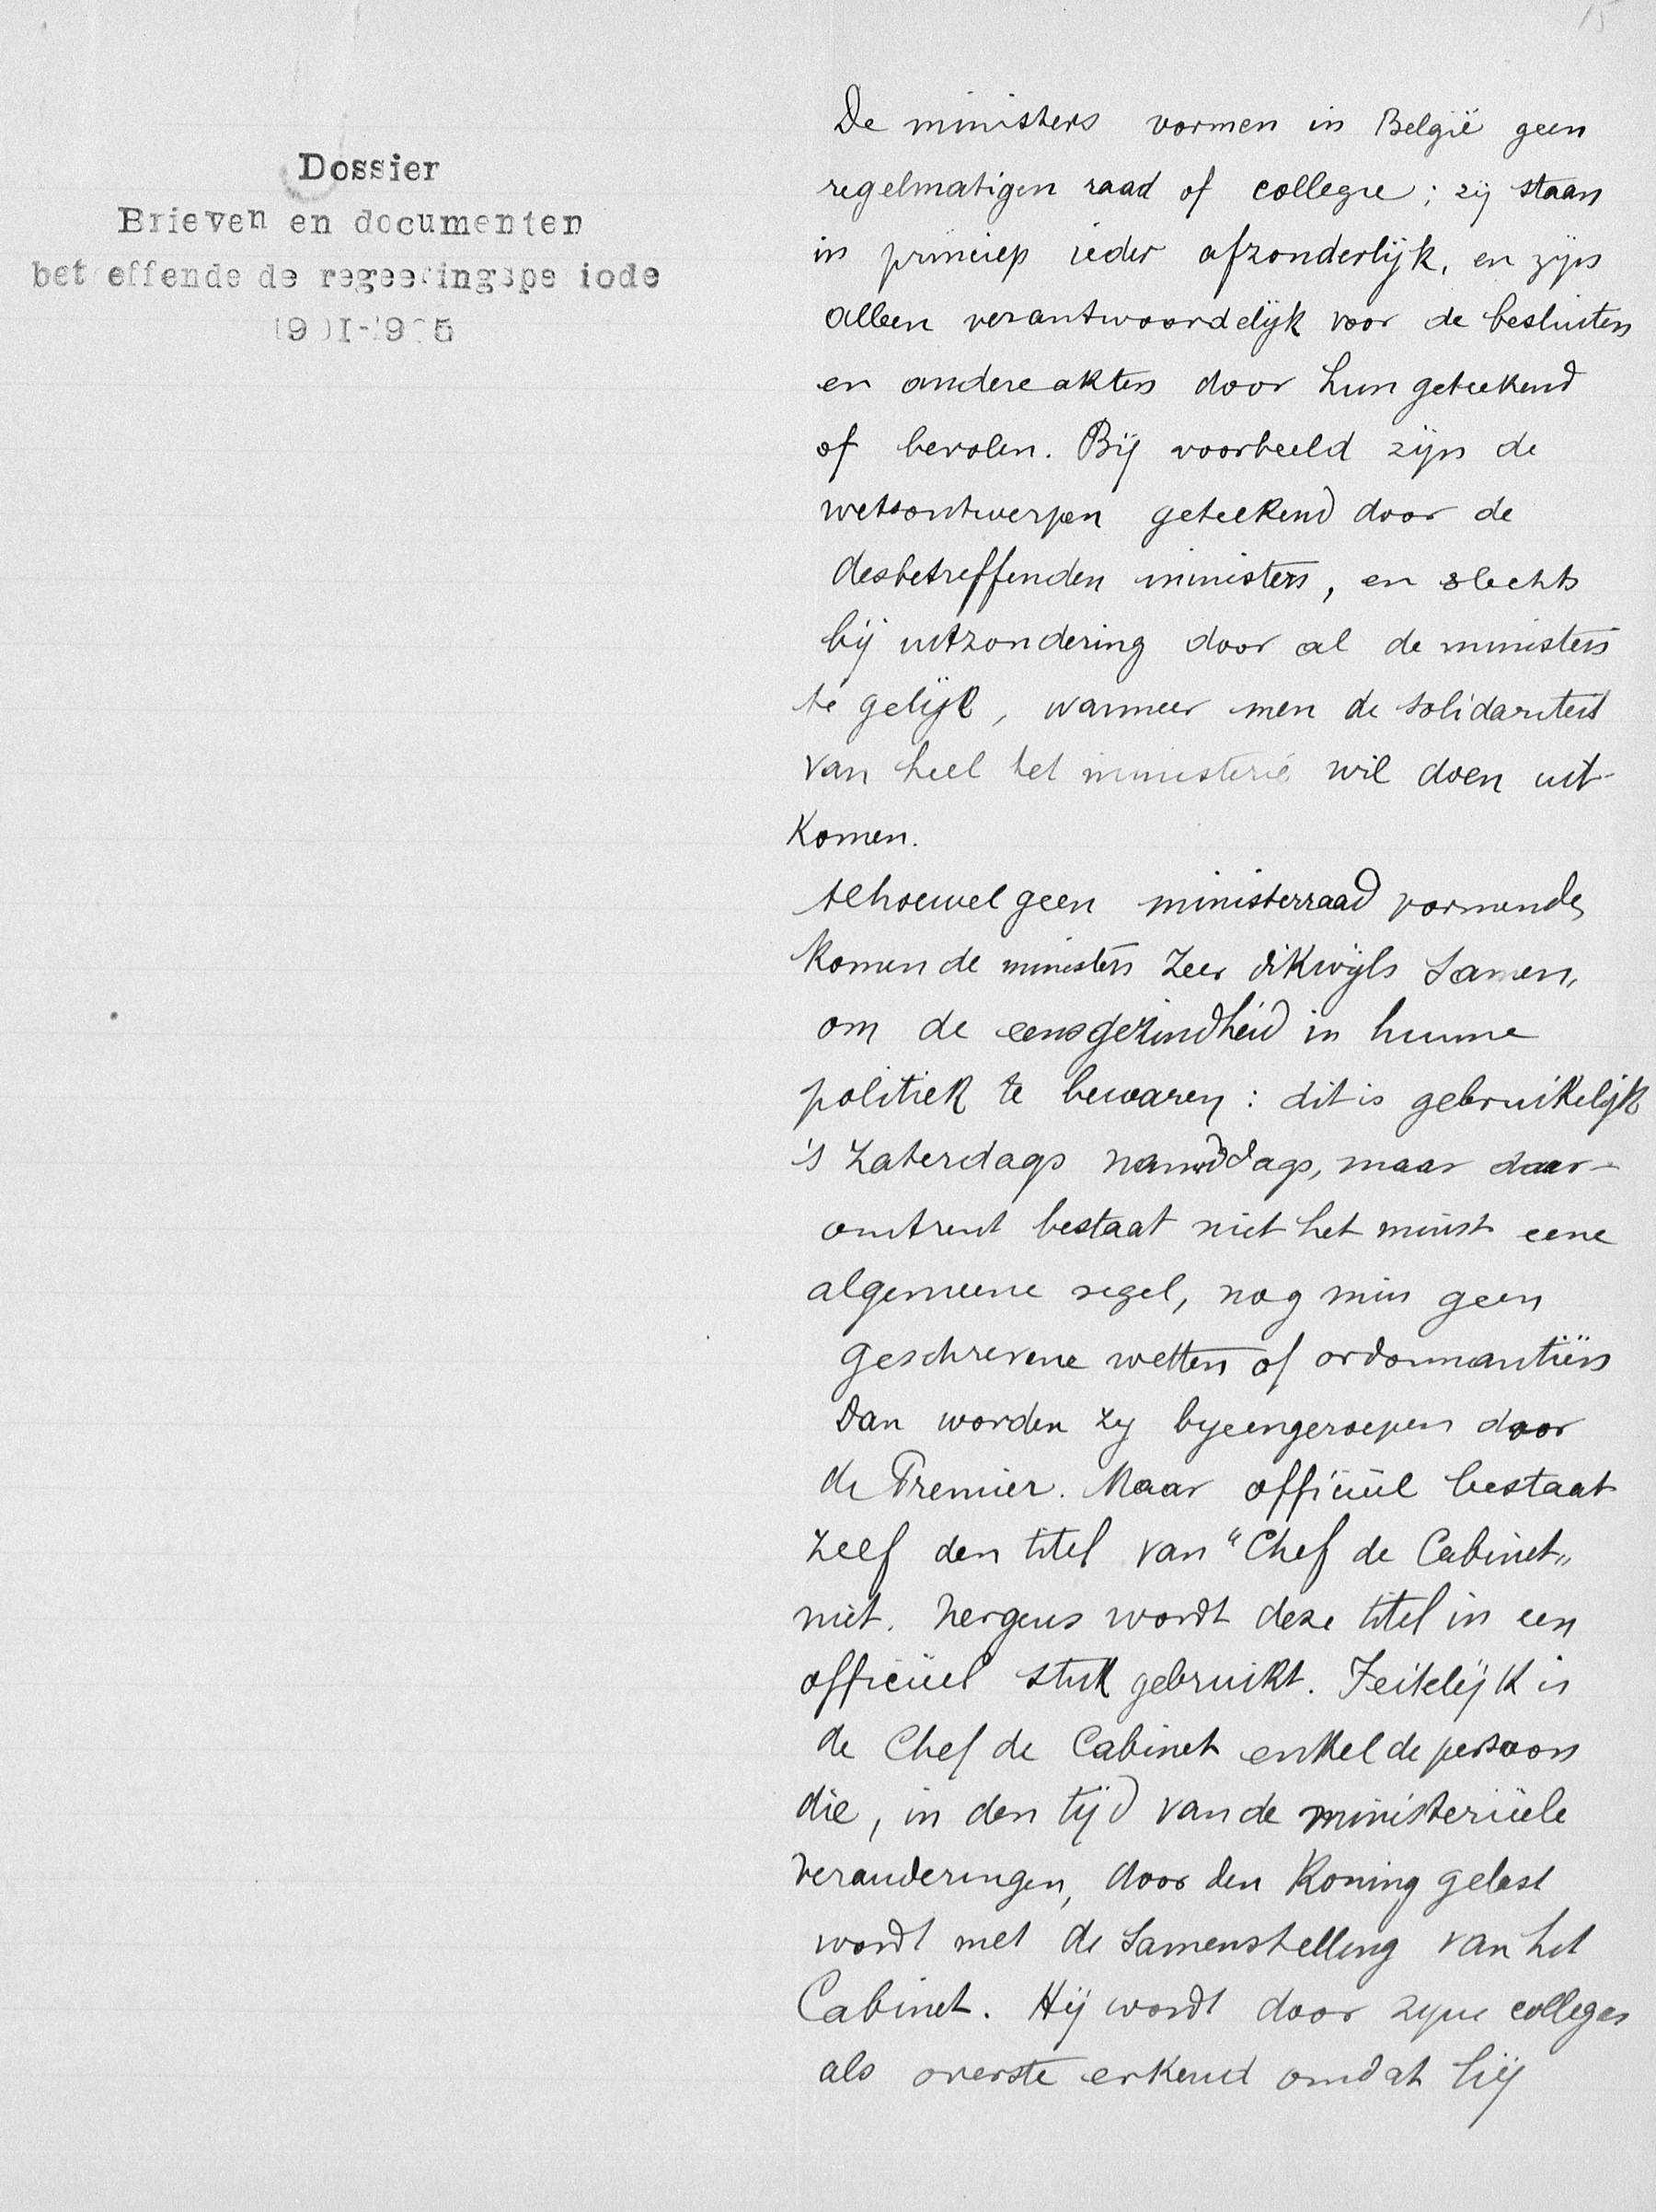 15
Dossier
Brieven en documenten
bet effende de regeeringspe iode
De ministers vormen in België geen
regelmatigen raad of collegie; zij staan
in princiep ieder afzonderlijk, en zijn
alleen verantwoordelijk voor de besluiten
en andere akten door hun geteekend
of bevolen. Bij voorbeeld zijn de
wetsontwerpen geteekend door de
desbetreffenden ministers, en slechts
bij uitzondering door al de ministers
te gelijk, wanneer men de solidariteit
van heel het ministerie wil doen uit-
komen.
Alhoewel geen ministerraad vormende,
komen de ministers zeer dikwijls samen,
om de eensgezindheid in hunne
politiek te bewaren: dit is gebruikelijk
's Zaterdags namiddags, maar daar-
omtrent bestaat niet het minst eene
algemeene regel, nog min geen
geschrevene wetten of ordonnantiën
Dan worden zij bijeengeroepen door
de Premier. Maar officiëel bestaat
zelf den titel van "Chef de Cabinet"
niet. Nergens wordt deze titel in een
officiëel stuk gebruikt. Feitelijk is
de Chef de Cabinet enkel de persoon
die, in den tijd van de ministeriëele
veranderingen, door den Koning gelast
wordt met de samenstelling van het
Cabinet. Hij wordt door zijne collegas
als overste erkend omdat hij